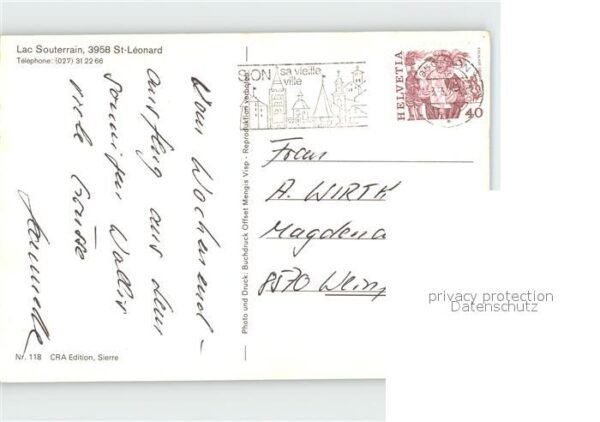 Lac Souterrain, 3958 St-Léonard
Téléphone: (027) 31 22 66
Vom Wochenend-
ausflug aus dem
sonnigen Wallis
viele Grüsse
Nr. 118 CRA Edition, Sierre
Photo und Druck: Buchdruck Offset Mengis Visp - Reproduktion verboten
SION sa vieille
ville
HELVETIA
40
Frau
A. WIRTH
Magdena
8570 Wein
privacy protection
Datenschutz